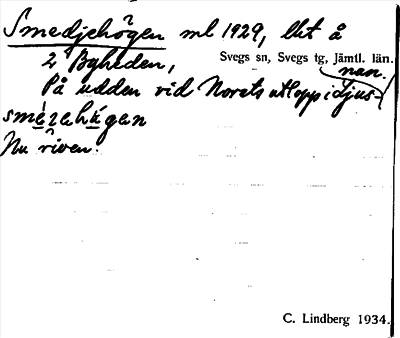 Smedjehögen ml 1929, lht å
2 Byheden,
Svegs sn, Svegs tg, Jämtl. län.
På udden vid Norets utlopp i Ljus-
nan.
smézehá̱gen
Nu riven.
C. Lindberg 1934.